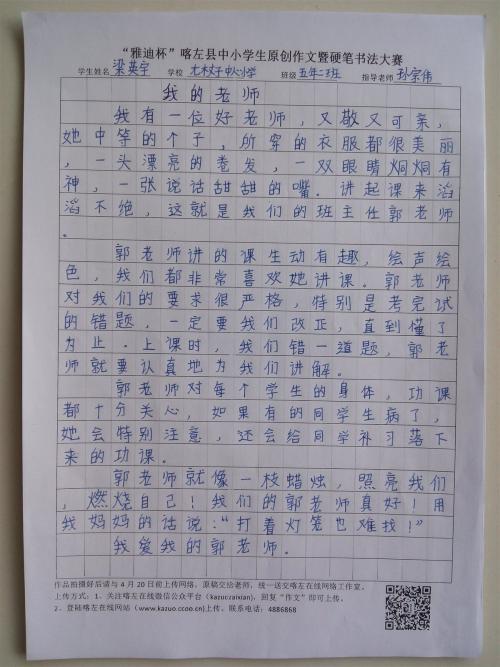 “雅迪杯”喀左县中小学生原创作文暨硬笔书法大赛
学生姓名 梁英宇 学校 中心小学 班级 五年二班 指导老师 孙宗伟
我的老师
我有一位好老师,又敬又可亲,
她中等的个子,所穿的衣服都很美丽
,一头漂亮的卷发,一双眼睛炯炯有
神,一张说话甜甜的嘴。讲起课来滔
滔不绝,这就是我们的班主任郭老师
。
郭老师讲的课生动有趣,绘声绘
色,我们都非常喜欢她讲课。郭老师
对我们的要求很严格,特别是考完试
的错题,一定要我们改正,直到懂了
为止.上课时,我们错一道题,郭老
师就要认真地为我们讲解。
郭老师对每个学生的身体,功课
都十分关心,如果有的同学生病了,
她会特别注意,还会给同学补习落下
来的功课。
郭老师就像一枝蜡烛,照亮我们
,燃烧自己!我们的郭老师真好!用
我妈妈的话说:“打着灯笼也难找!”
我爱我的郭老师。
作品拍摄好后请与4月20日前上传网络,原稿交给老师,统一送交喀左在线网络工作室。
上传方式:1、关注喀左在线微信公众平台(kazuozaixian),回复“作文”即可上传。
2、登陆喀左在线网站(www.kazuo.ccoo.cn)上传。联系电话:4886868